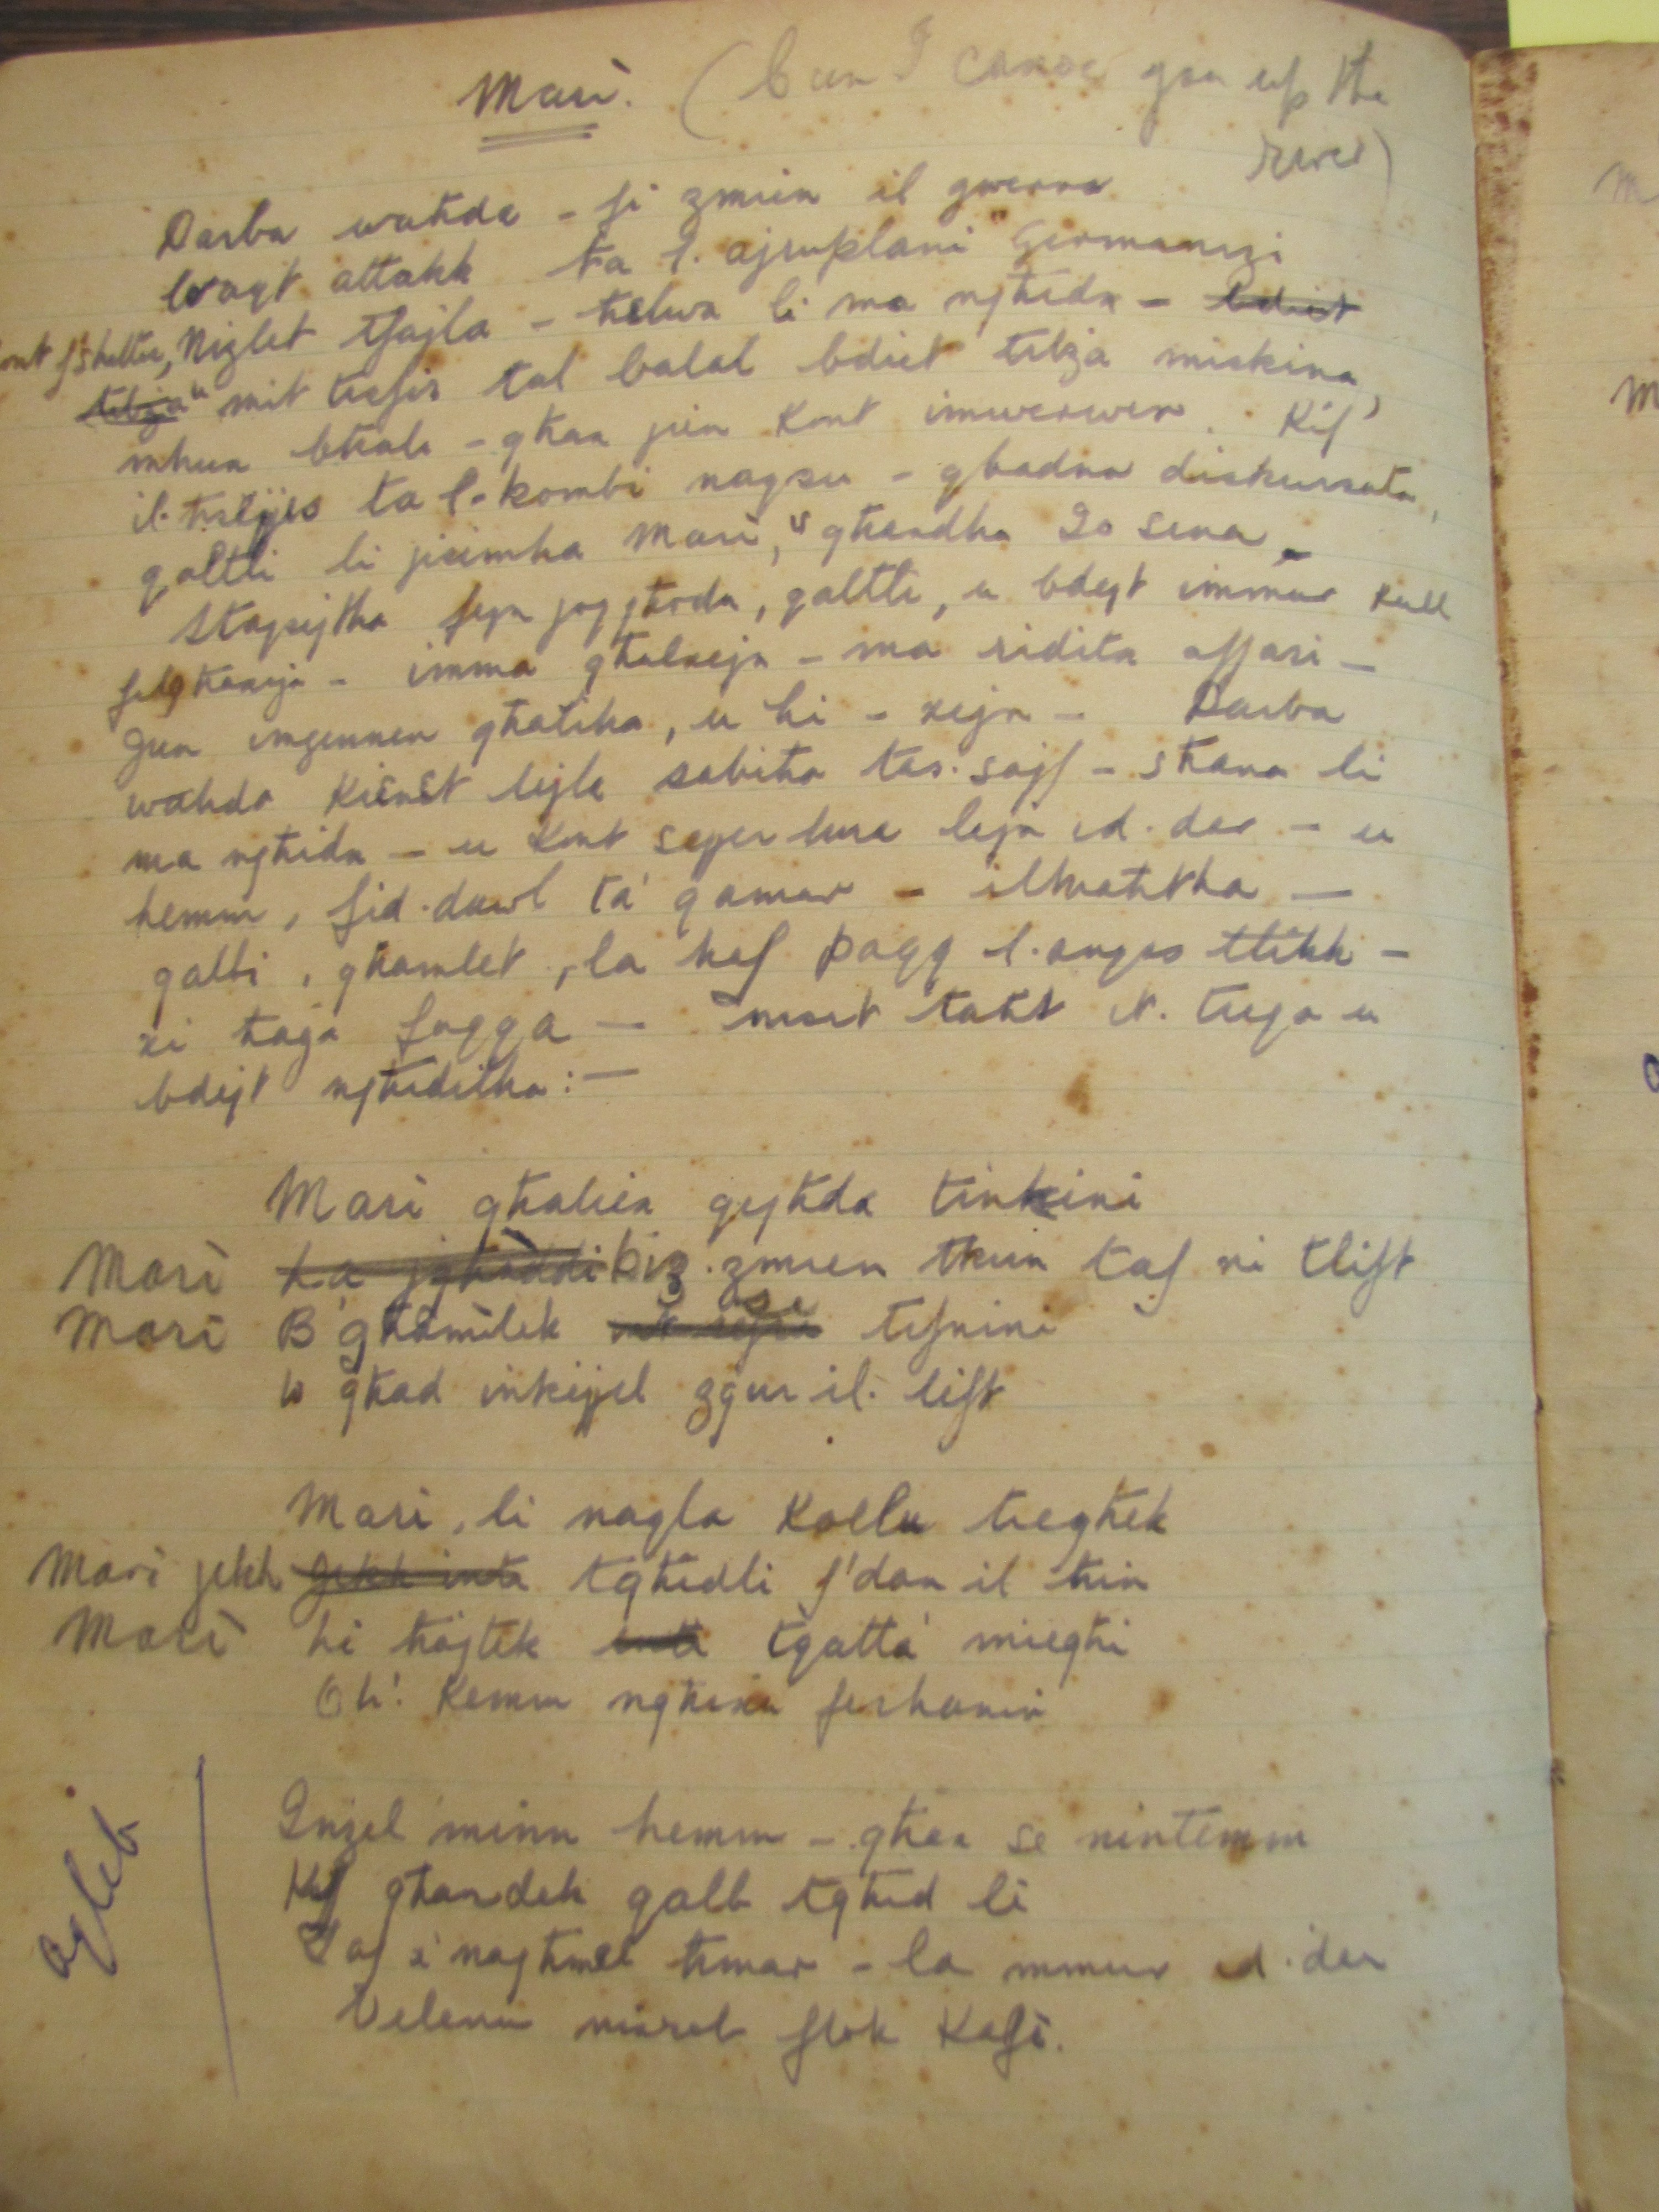 Mari. (Can I canoe you up the
River)
Darba waħda - fi zmien il gwerra
waqt attakk ta l-ajruplani Germanizi
kont f'shelter, Niżlet tfajla - ħelwa li ma ngħidx - bdiet
tibża" mit tisfir tal balal bdiet tibża miskina,
mhux bħali - għax jien kont imwerwer. Kif
it-tisfjir ta l-bombi naqsu - qbadna diskursata,
qaltli li jisimha Mari, u għandha 20 sena.
Staqsejtha fejn joqgħodu, qaltli, u bdejt immur kull
filgħaxija - imma għalxejn - ma riditx affari -
Jien imġennen għaliha, u hi - xejn - Darba
waħda kienet lejla sabiħa tas-sajf - sħana li
ma ngħidx - u kont sejjer lura lejn id-dar - u
hemm, fid-dawl ta' qamar - ilmaħtha -
qalbi, għamlet, la ħaf paqq l-anqas tikk -
xi ħaġa faqqa - mort taħt it-tieqa u
bdejt ngħidilha: -
Mari għaliex qegħda tinkini
Mari La jgħaddi biż-żmien tkun taf xi tlift
Mari B'għamilek se tifnini
W għad inkejjel zgur il-lift
Mari, li naqla kollu tiegħek
Mari jekk Jekk inti tgħidli f'dan il ħin
Mari Li ħajtek inti tgħatta' miegħi
Oh! Kemm ngħixu ferħanin
Inzel minn hemm - għax se nintemm
Kif għandek qalb tgħid li
Taf x'nagħmel ħmar - la mmur id-dar
Velenu nixrob flok Kafè.
Aqleb